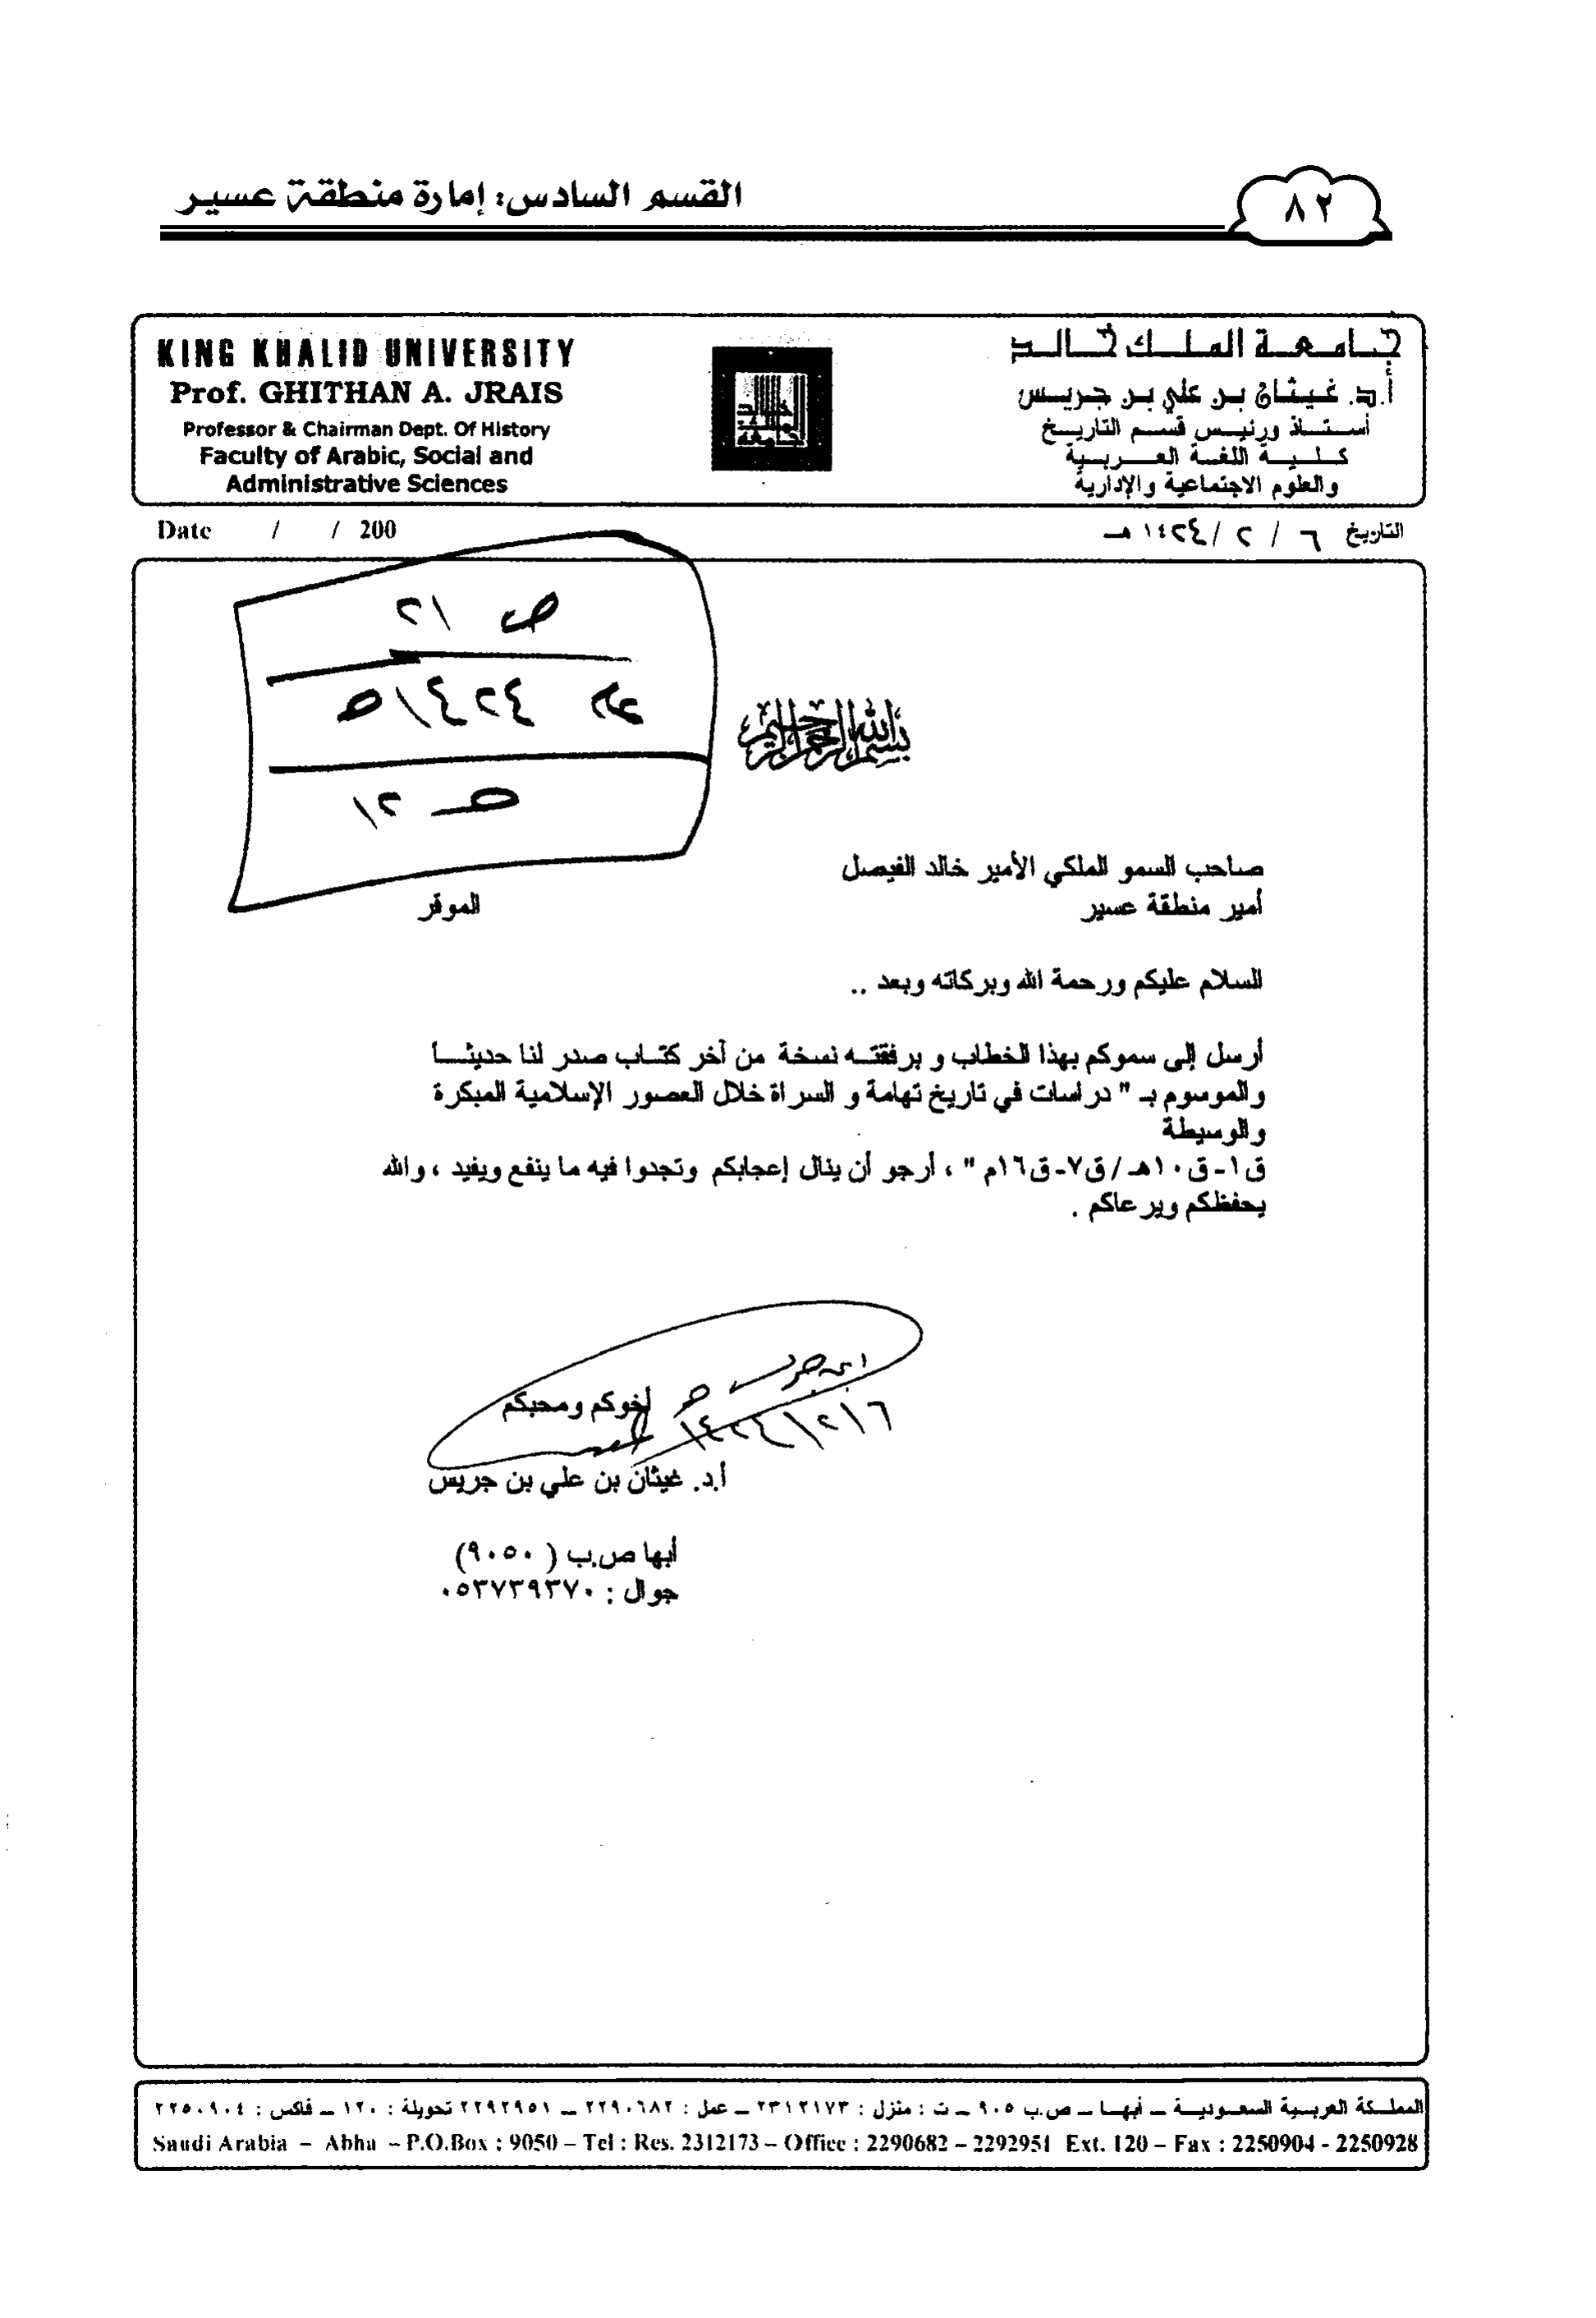 القسم السادس: إمارة منطقة عسير
٨٢
KING KHALID UNIVERSITY
Prof. GHITHAN A. JRAIS
Professor & Chairman Dept. Of History
Faculty of Arabic, Social and
Administrative Sciences
جامعة الملك خالد
أ.د. غيثان بن علي بن جريس
أستاذ ورئيس قسم التاريخ
كلية اللغة العربية
والعلوم الاجتماعية والإدارية
خالد
الملك
جامعة
Date / / 200
التاريخ ٦ / ٢ / ١٤٢٤ هـ
ص ٢١
٤٢٤/٥
ص ٢١
بسم الله الرحمن الرحيم
صاحب السمو الملكي الأمير خالد الفيصل
أمير منطقة عسير الموقر
السلام عليكم ورحمة الله وبركاته وبعد ..
أرسل إلى سموكم بهذا الخطاب و برفقته نسخة من آخر كتاب صدر لنا حديثا
والموسوم بـ " دراسات في تاريخ تهامة و السراة خلال العصور الإسلامية المبكرة
والوسيطة
ق١-ق١٠هـ/ق٧-ق١٦م " ، أرجو أن ينال إعجابكم وتجدوا فيه ما ينفع ويفيد ، والله
يحفظكم ويرعاكم .
ابن جريس
١٤٢٤/٢/٦
أخوكم ومحبكم
أ.د. غيثان بن علي بن جريس
أبها ص.ب ( ٩٠٥٠)
جوال : ٠٥٣٧٣٩٣٧٠
المملكة العربية السعودية – أبها – ص.ب ٩٠٥ – ت : منزل : ٢٣١٢١٧٣ – عمل : ٢٢٩٠٦٨٢ – ٢٢٩٢٩٥١ تحويلة : ١٢٠ – فاكس : ٢٢٥٠٩٠٤
Saudi Arabia – Abha – P.O.Box : 9050 – Tel : Res. 2312173 – Office : 2290682 – 2292951 Ext. 120 – Fax : 2250904 - 2250928